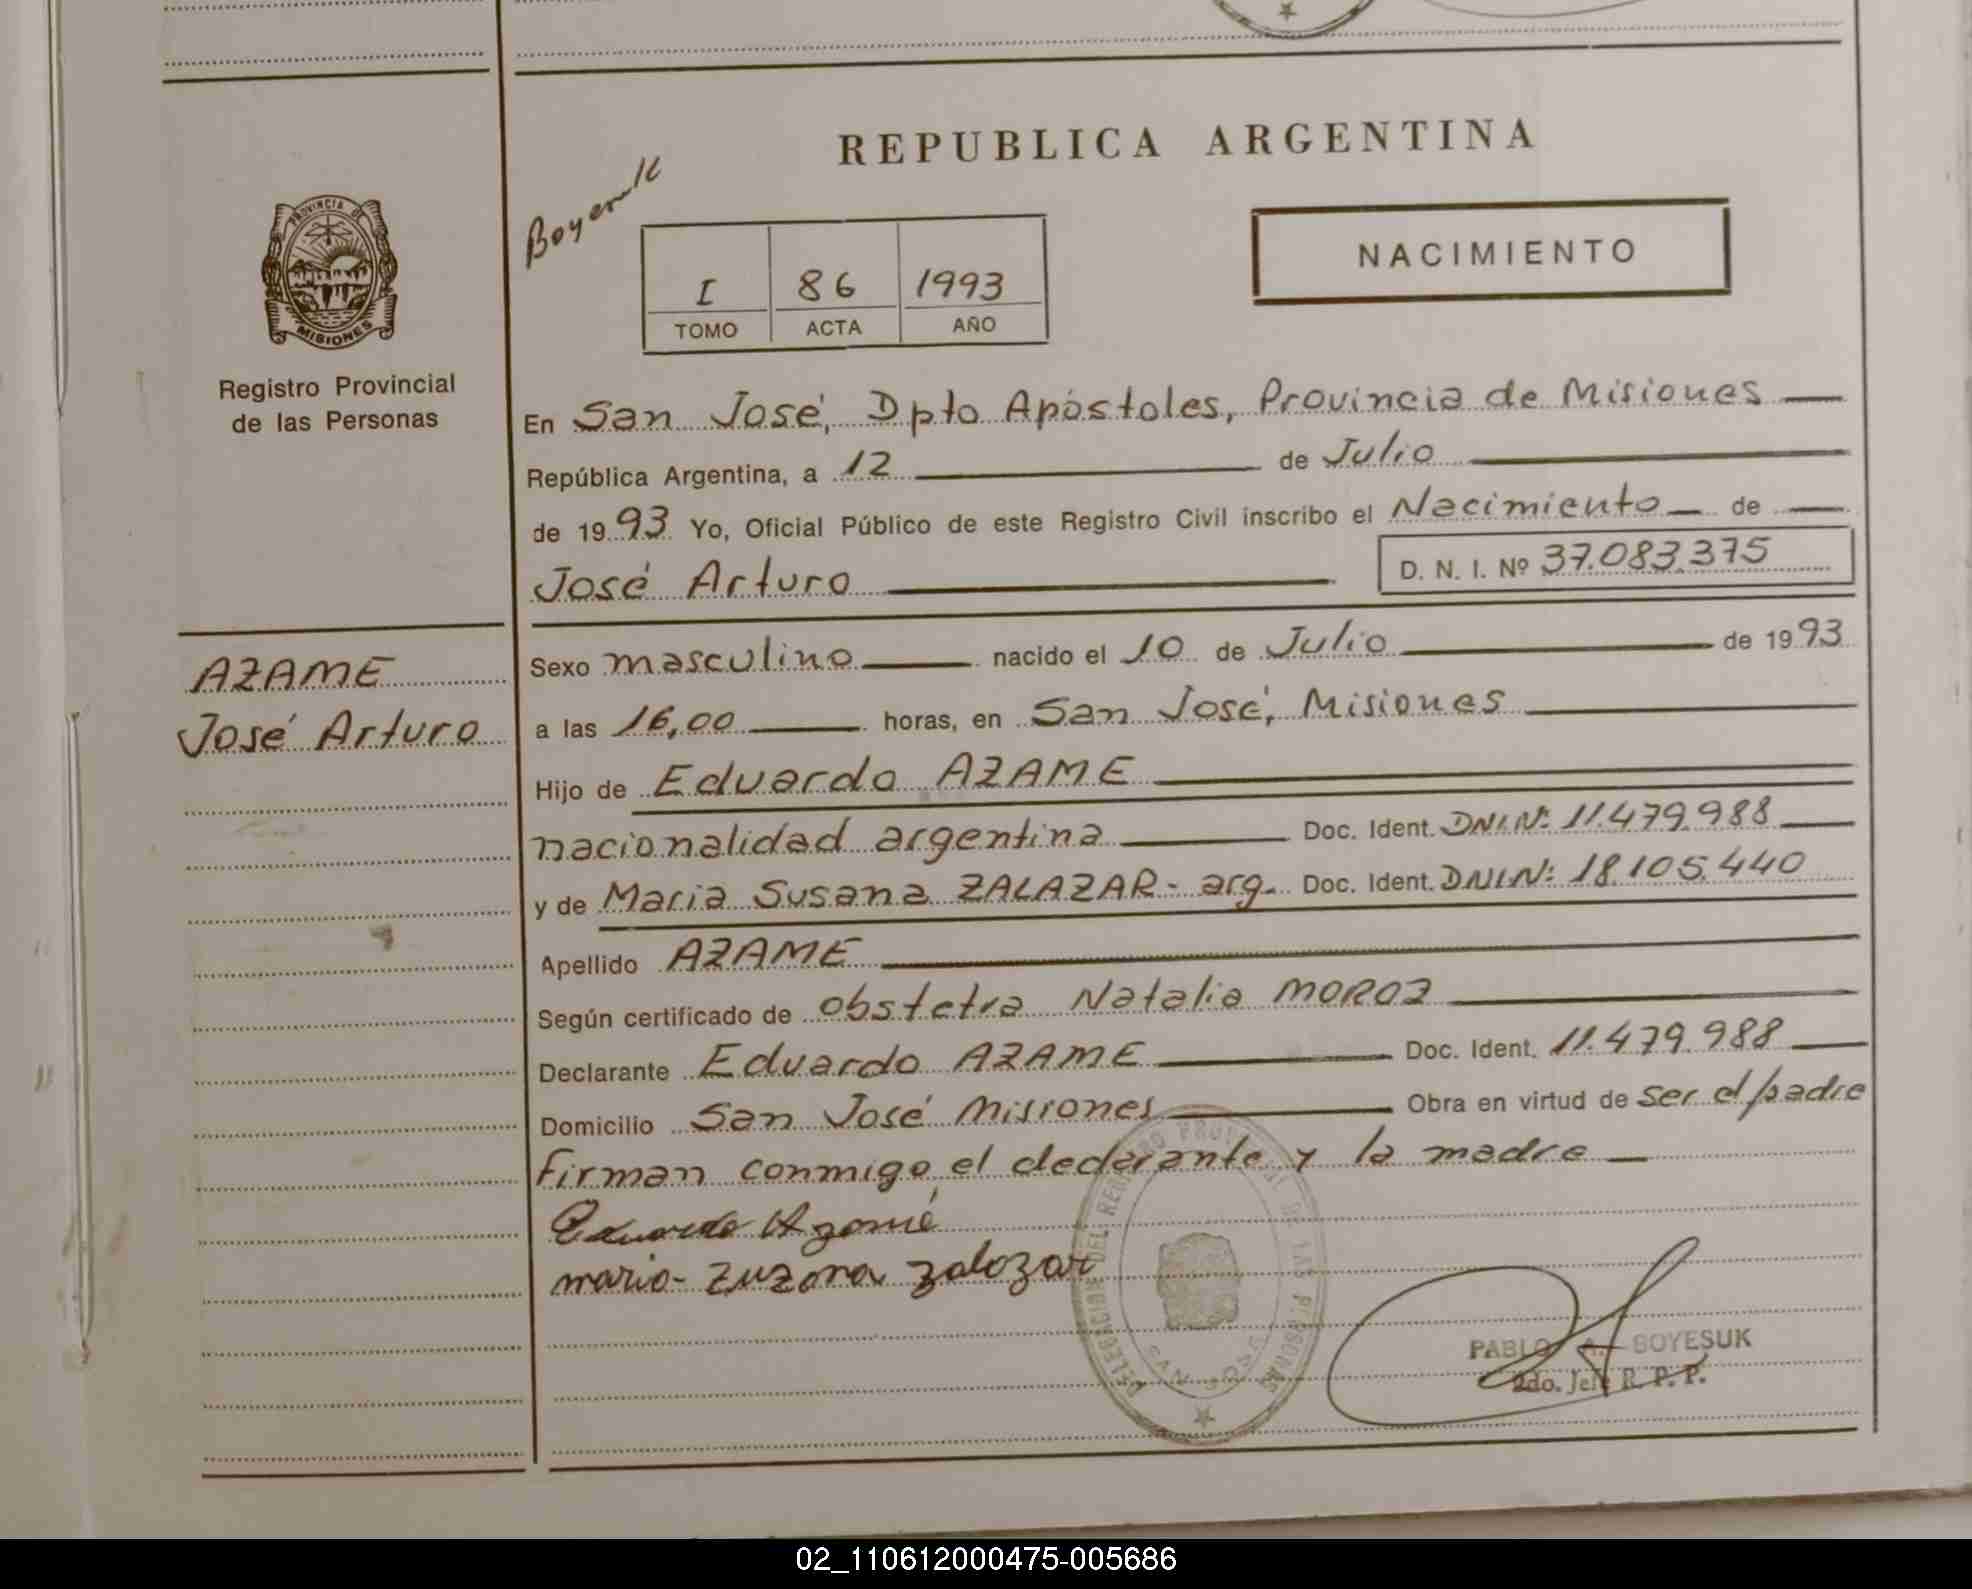 REPUBLICA ARGENTINA
PROVINCIA DE
MISIONES
Registro Provincial
de las Personas
I 86 1993
TOMO ACTA AÑO
NACIMIENTO
En San José, Dpto Apóstoles, Provincia de Misiones
República Argentina, a 12 de Julio
de 1993 Yo, Oficial Público de este Registro Civil inscribo el Nacimiento de
José Arturo D. N. I. Nº 37.083.375
AZAME
José Arturo
Sexo masculino nacido el 10 de Julio de 1993
a las 16,00 horas, en San José, Misiones
Hijo de Eduardo AZAME
nacionalidad argentina Doc. Ident. DNI.Nº: 11.479.988
y de Maria Susana ZALAZAR - arg. Doc. Ident. DNI.Nº: 18.105.440
Apellido AZAME
Según certificado de obstetra Natalia MOROZ
Declarante Eduardo AZAME Doc. Ident. 11.479.988
Domicilio San José Misiones Obra en virtud de ser el padre
Firman conmigo, el declarante y la madre
Eduardo Azamé
maria - zuzana zalazar
DELEGACION DEL REGISTRO PROVINCIAL DE LAS PERSONAS
SAN JOSE
PABLO A. BOYESUK
2do. Jefe R. P. P.
02_110612000475-005686